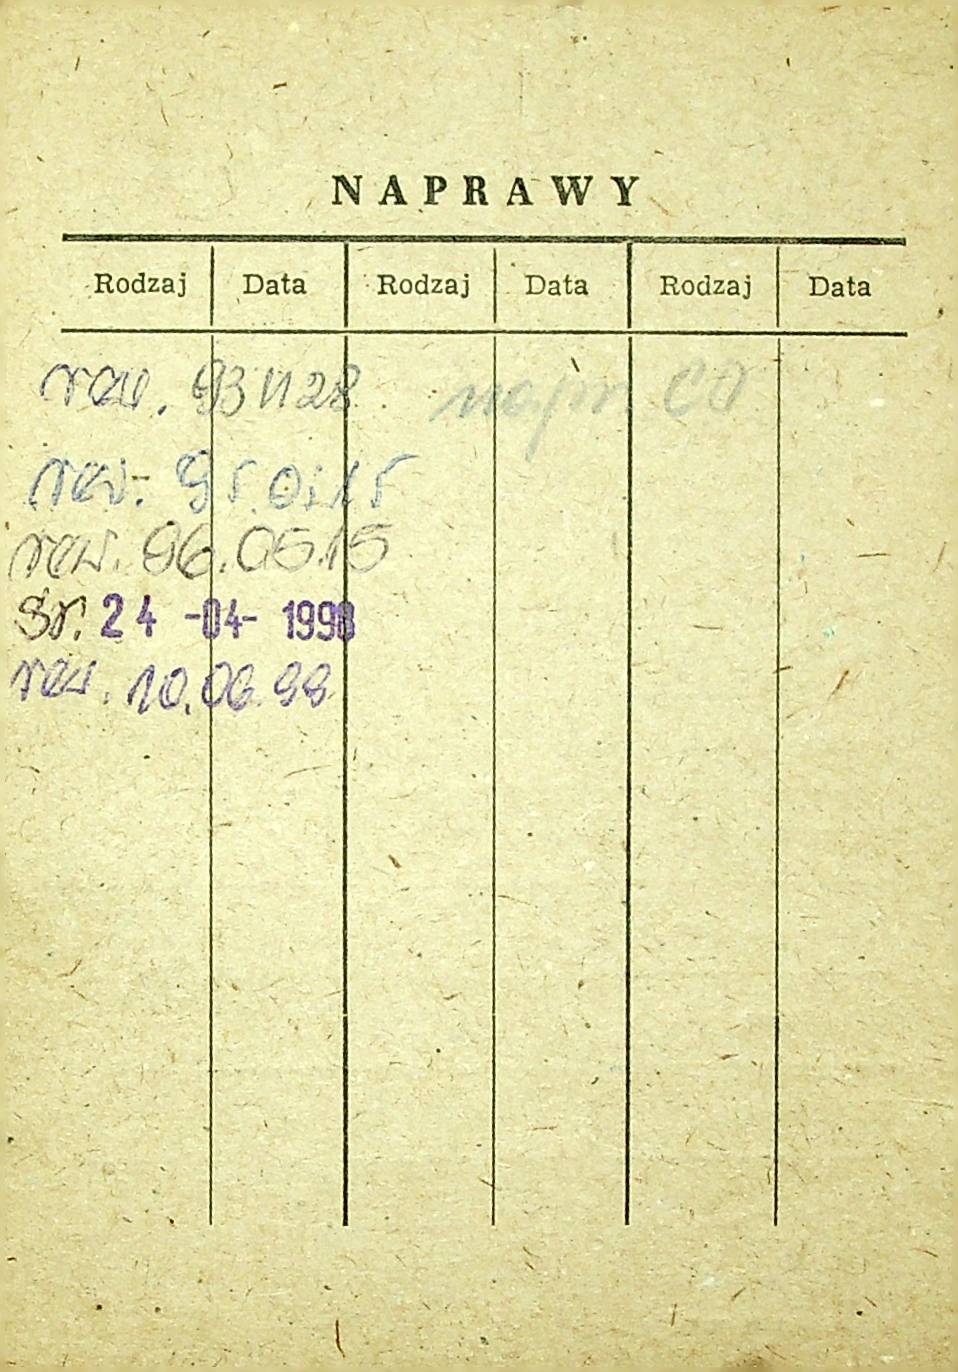 NAPRAWY
Rodzaj Data Rodzaj Data Rodzaj Data
rew. 93 11 28 napr.
rew. 95.01.15
rew. 96.05.15
Sr. 24 -04- 1998
rew. 10.06.99